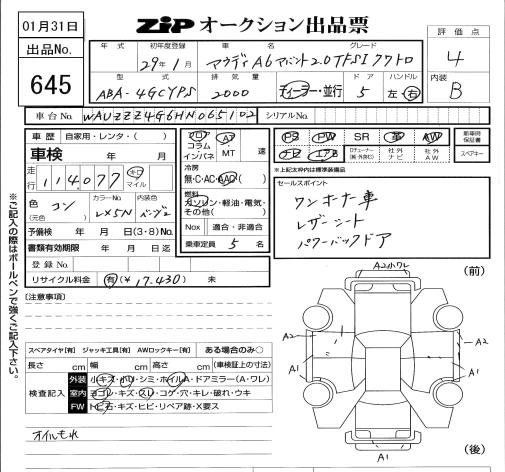 01月31日
出品No.
645
ZIPオークション出品票
評価点
4
内装
B
年式 初年度登録 車名 グレード
29年1月 アウディA6アバント2.0TFSIクワトロ
型式 排気量 ドア ハンドル
ABA-4GCYPS 2000 ディーラー・並行 5 左・右
車台No. WAUZZZ4G6HN065102 シリアルNo.
車歴 自家用・レンタ・( )
車検 年 月
走行 114,077 キロ マイル
色 コン カラーNo. LX5N 内装色 ベージュ
(元色)
予備検 年 月 日(3・8)No.
書類有効期限 年 月 日迄
登録No.
リサイクル料金 有(¥ 17,430) 未
フロア コラム インパネ
AT・MT 速
冷房
無・C・AC・AAC
燃料
ガソリン・軽油・電気・
その他( )
Nox 適合・非適合
乗車定員 5 名
PS PW SR 革 AW
ナビ エアB TVチューナー(純・社外CD) 社外ナビ 社外AW
新車時保証書
スペアキー
※上記太枠内は標準装備品
セールスポイント
ワンオーナー車
レザーシート
パワーバックドア
※ご記入の際はボールペンで強くご記入下さい。
[注意事項]
スペアタイヤ[有] ジャッキ工具[有] AWロックキー[有] ある場合のみ○
長さ cm 幅 cm 高さ cm (車検証上の寸法)
検査記入
外装 小キズ・小凹・シミ・ホイルA・ドアミラー(A・ワレ)
室内 ヨゴレ・キズ・スレ・コゲ・穴・キレ・破れ・ウキ
FW トビ石・キズ・ヒビ・リペア跡・X要ス
オイルもれ
(前)
A2小ワレ
A2
A2
A1
A1
A1
(後)